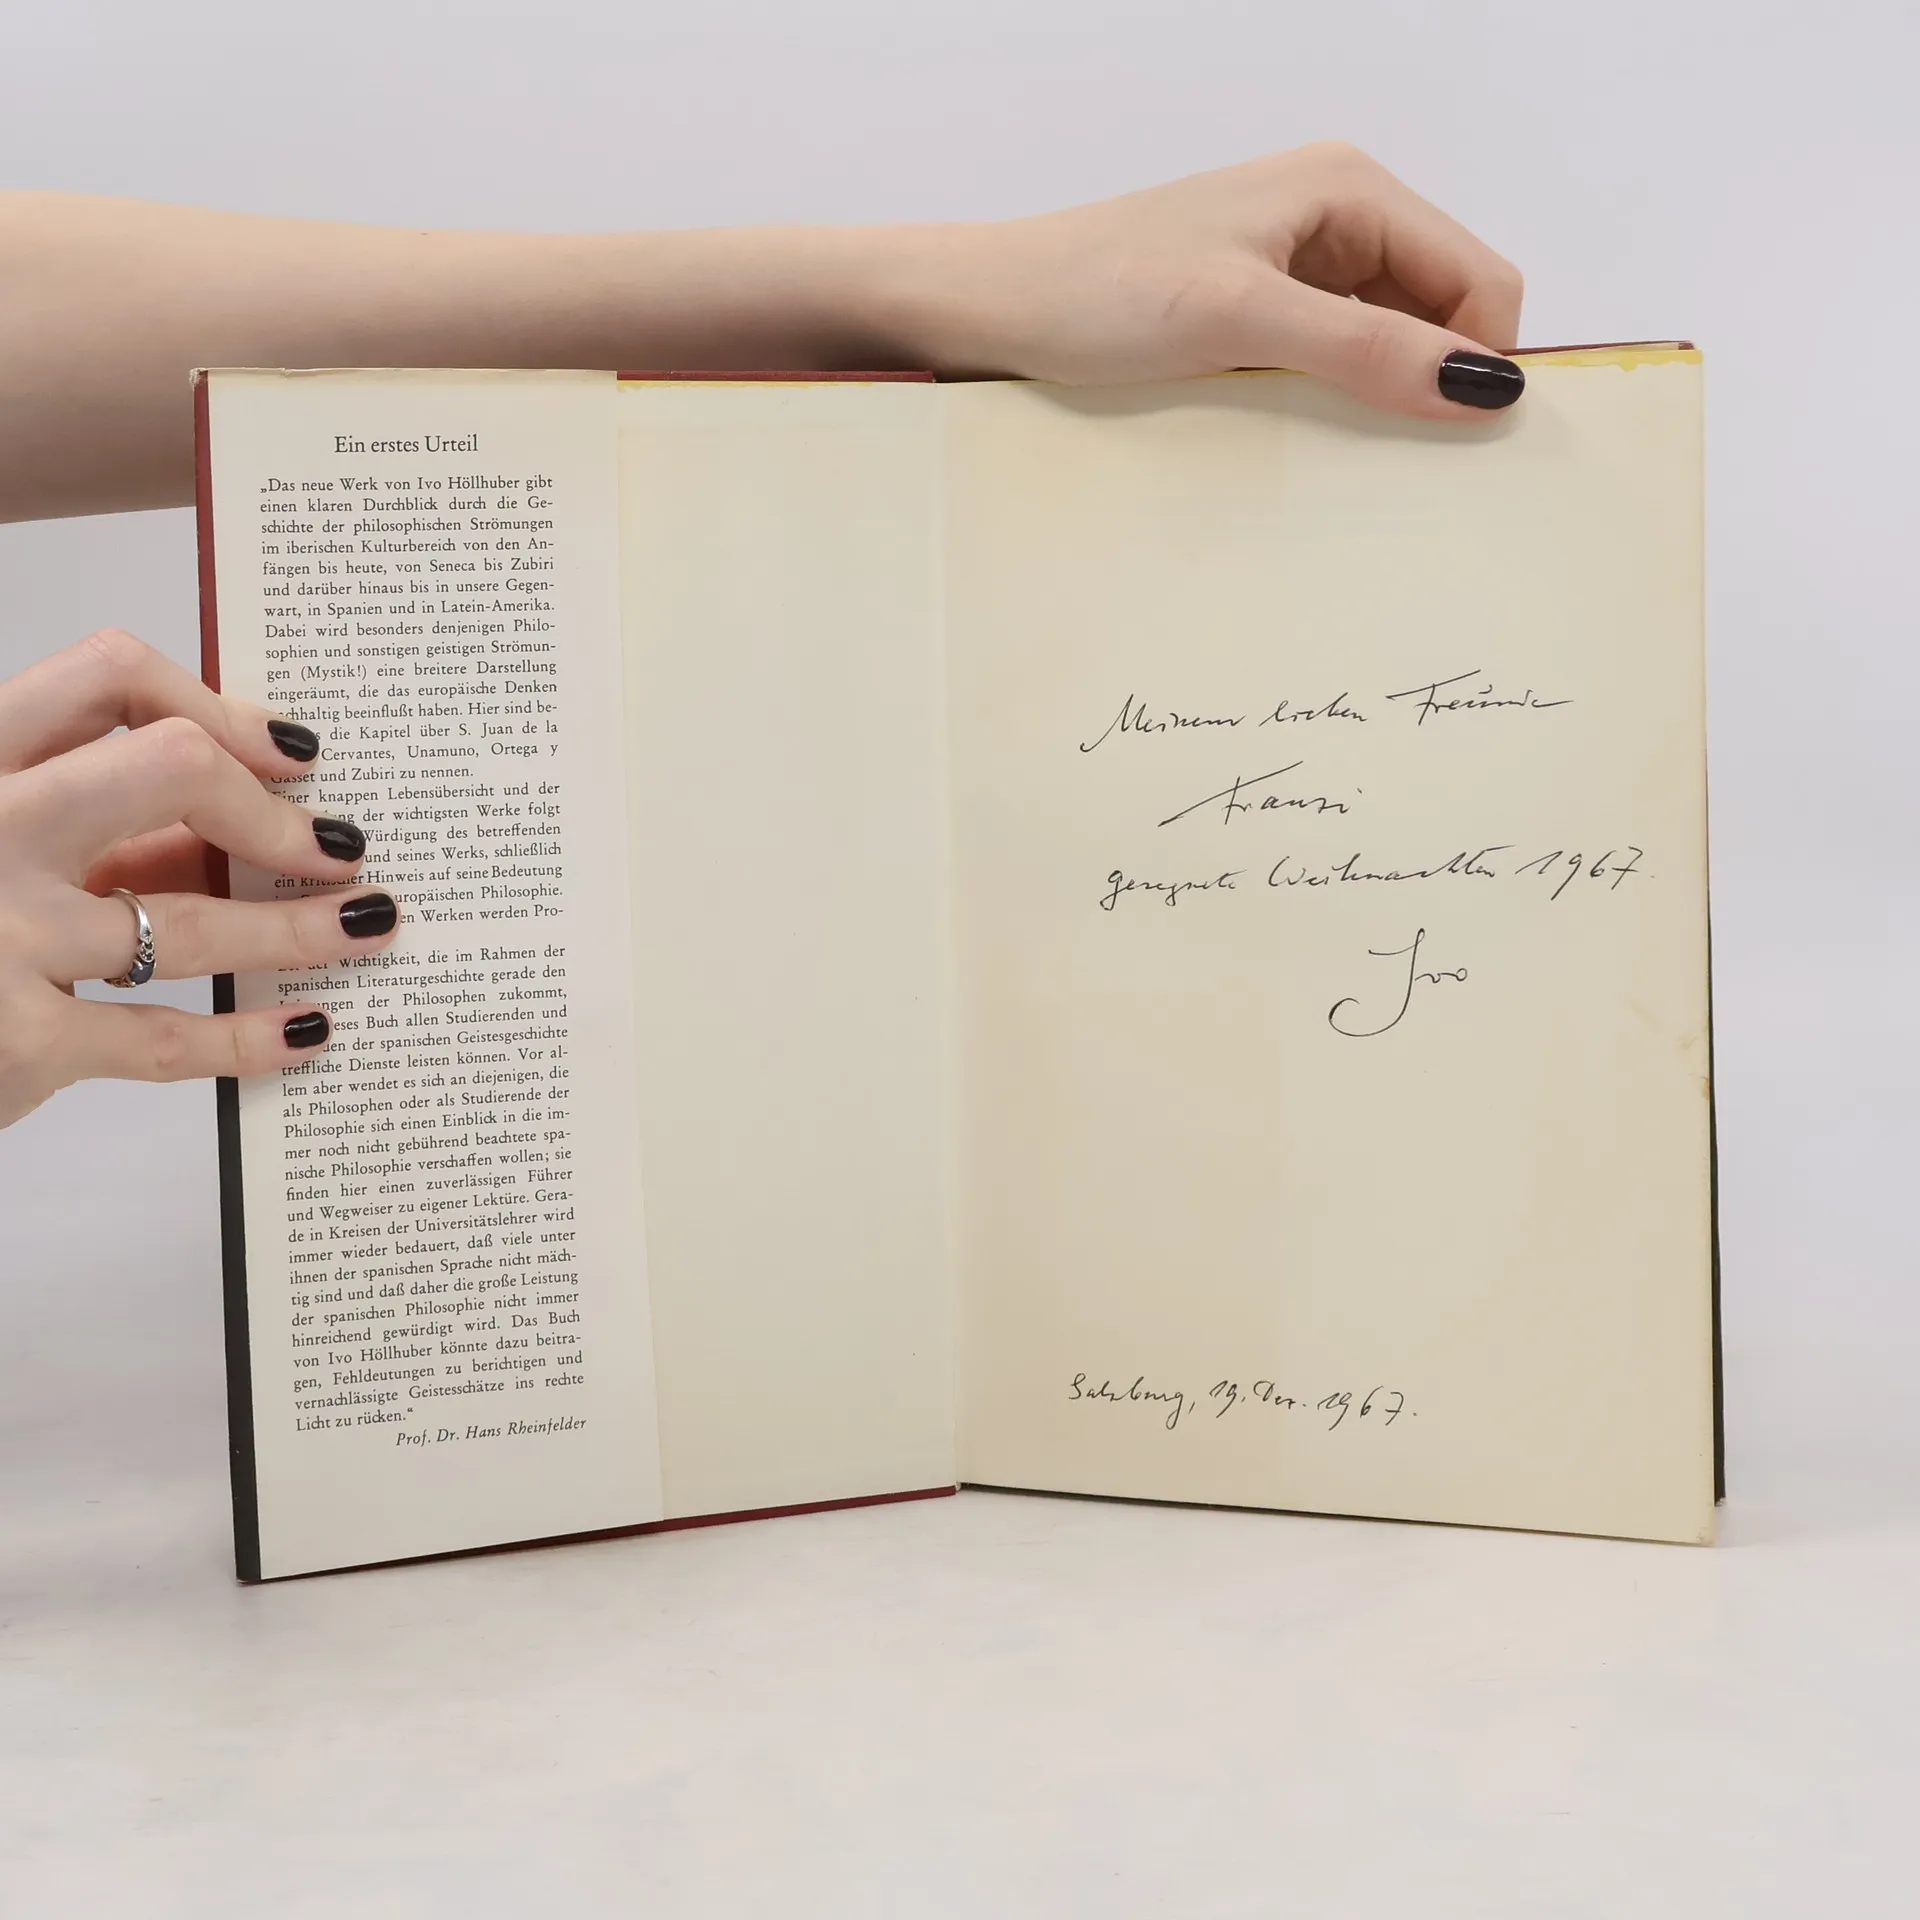 Ein erstes Urteil
„Das neue Werk von Ivo Höllhuber gibt
einen klaren Durchblick durch die Ge-
schichte der philosophischen Strömungen
im iberischen Kulturbereich von den An-
fängen bis heute, von Seneca bis Zubiri
und darüber hinaus bis in unsere Gegen-
wart, in Spanien und in Latein-Amerika.
Dabei wird besonders denjenigen Philo-
sophien und sonstigen geistigen Strömun-
gen (Mystik!) eine breitere Darstellung
eingeräumt, die das europäische Denken
chhaltig beeinflußt haben. Hier sind be-
s die Kapitel über S. Juan de la
Cervantes, Unamuno, Ortega y
Gasset und Zubiri zu nennen.
Einer knappen Lebensübersicht und der
ng der wichtigsten Werke folgt
Würdigung des betreffenden
und seines Werks, schließlich
ein kritischer Hinweis auf seine Bedeutung
uropäischen Philosophie.
en Werken werden Pro-
der Wichtigkeit, die im Rahmen der
spanischen Literaturgeschichte gerade den
ngen der Philosophen zukommt,
eses Buch allen Studierenden und
den der spanischen Geistesgeschichte
treffliche Dienste leisten können. Vor al-
lem aber wendet es sich an diejenigen, die
als Philosophen oder als Studierende der
Philosophie sich einen Einblick in die im-
mer noch nicht gebührend beachtete spa-
nische Philosophie verschaffen wollen; sie
finden hier einen zuverlässigen Führer
und Wegweiser zu eigener Lektüre. Gera-
de in Kreisen der Universitätslehrer wird
immer wieder bedauert, daß viele unter
ihnen der spanischen Sprache nicht mäch-
tig sind und daß daher die große Leistung
der spanischen Philosophie nicht immer
hinreichend gewürdigt wird. Das Buch
von Ivo Höllhuber könnte dazu beitra-
gen, Fehldeutungen zu berichtigen und
vernachlässigte Geistesschätze ins rechte
Licht zu rücken.“
Prof. Dr. Hans Rheinfelder
Meinem lieben Freunde
Franzi
gesegnete Weihnachten 1967.
Ivo
Salzburg, 19. Dez. 1967.